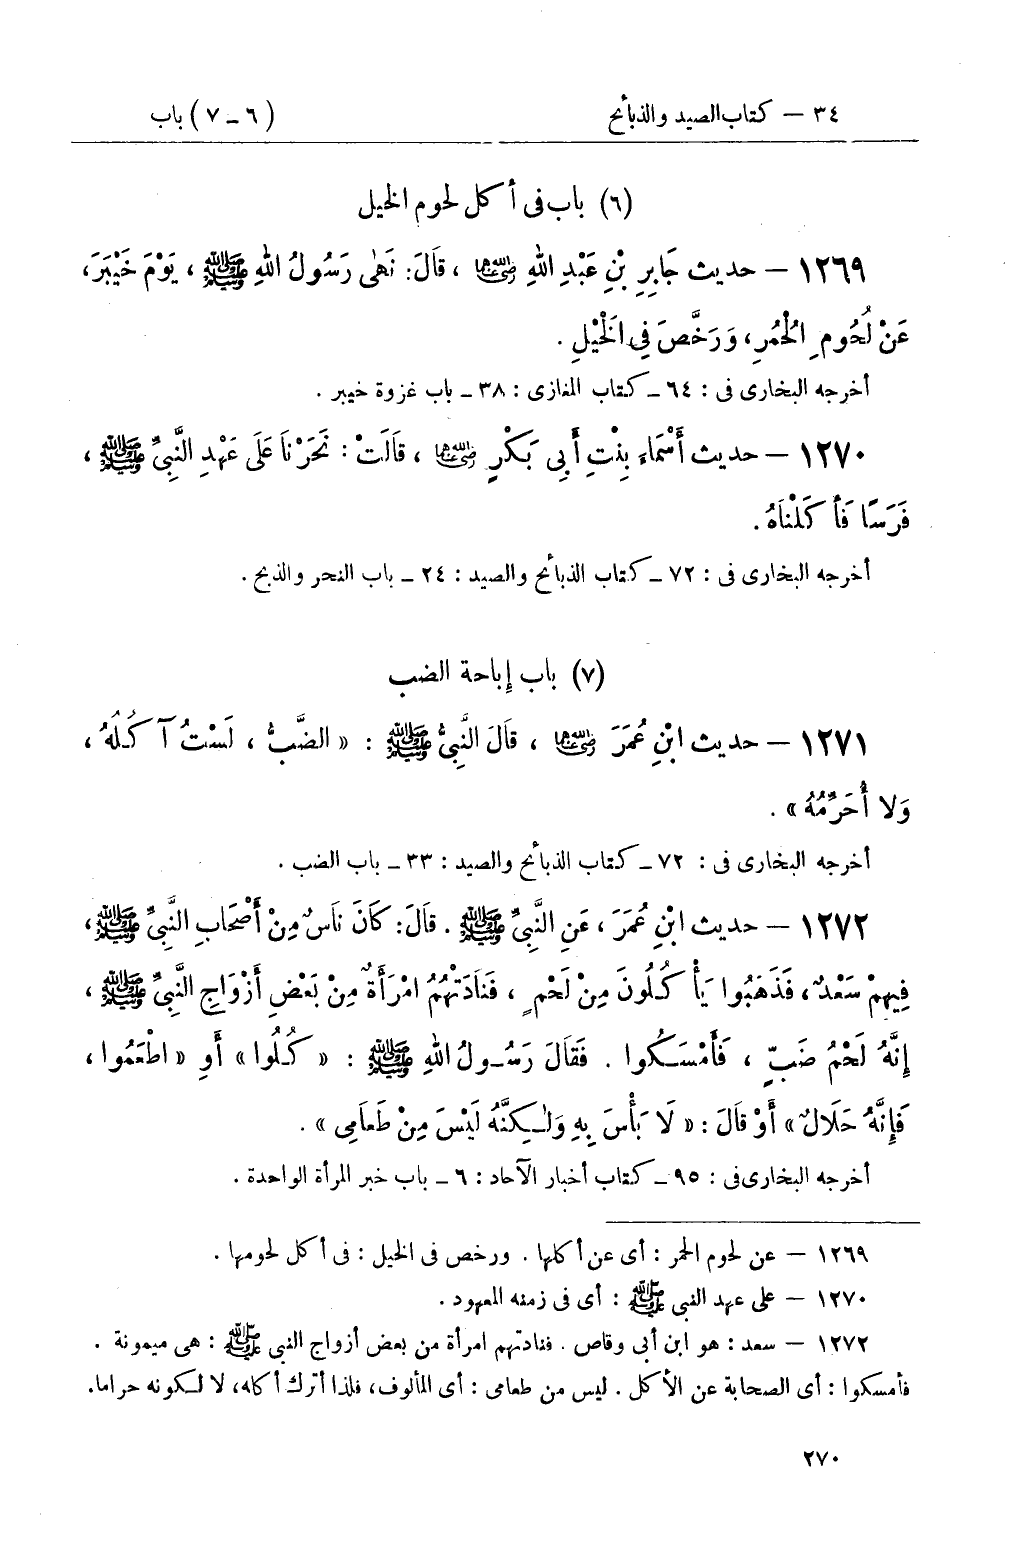 ٣٤ – كتاب الصيد والذبائح (٦ – ٧) باب
(٦) باب فى أكل لحوم الخيل
١٢٦٩ – حديث جَابِرِ بْنِ عَبْدِ اللهِ رضي الله عنهما ، قَالَ: نَهٰى رَسُولُ اللهِ ﷺ ، يَوْمَ خَيْبَرَ،
عَنْ لُحُومِ الْحُمُرِ، وَرَخَّصَ فِى الْخَيْلِ .
أخرجه البخارى فى : ٦٤ ـ كتاب المغازى : ٣٨ ـ باب غزوة خيبر .
١٢٧٠ – حديث أَسْمَاءَ بِنْتِ أَبِى بَكْرٍ رضي الله عنهما ، قَالَتْ : نَحَرْنَا عَلَى عَهْدِ النَّبِىِّ ﷺ ،
فَرَسًا فَأَ كَلْنَاهُ .
أخرجه البخارى فى : ٧٢ ـ كتاب الذبائح والصيد : ٢٤ ـ باب النحر والذبح .
(٧) باب إباحة الضب
١٢٧١ – حديث ابْنِ عُمَرَ رضي الله عنهما ، قَالَ النَّبِىُّ ﷺ : « الضَّبُّ ، لَسْتُ آ كُلُهُ ،
وَلَا أُحَرِّمُهُ » .
أخرجه البخارى فى : ٧٢ ـ كتاب الذبائح والصيد : ٣٣ ـ باب الضب .
١٢٧٢ – حديث ابْنِ عُمَرَ ، عَنِ النَّبِىِّ ﷺ . قَالَ: كَانَ نَاسٌ مِنْ أَصْحَابِ النَّبِىِّ ﷺ،
فِيهِمْ سَعْدٌ ، فَذَهَبُوا يَأْ كُلُونَ مِنْ لَحْمٍ ، فَنَادَتْهُمُ امْرَأَةٌ مِنْ بَعْضِ أَزْوَاجِ النَّبِىِّ ﷺ ،
إِنَّهُ لَحْمُ ضَبٍّ ، فَأَمْسَكُوا . فَقَالَ رَسُولُ اللهِ ﷺ : « كُلُوا » أَوِ « اطْعَمُوا ،
فَإِنَّهُ حَلَالٌ » أَوْ قَالَ : « لَا بَأْسَ بِهِ وَلٰكِنَّهُ لَيْسَ مِنْ طَعَامِى » .
أخرجه البخارى فى : ٩٥ ـ كتاب أخبار الآحاد : ٦ ـ باب خبر المرأة الواحدة .
١٢٦٩ – عن لحوم الحمر : أى عن أكلها . ورخص فى الخيل : فى أكل لحومها .
١٢٧٠ – على عهد النبى ﷺ : أى فى زمنه المعهود .
١٢٧٢ – سعد : هو ابن أبى وقاص . فنادتهم امرأة من بعض أزواج النبى ﷺ : هى ميمونة .
فأمسكوا : أى الصحابة عن الأكل . ليس من طعامى : أى المألوف، فلذا أترك أكله، لا لكونه حراما.
٢٧٠